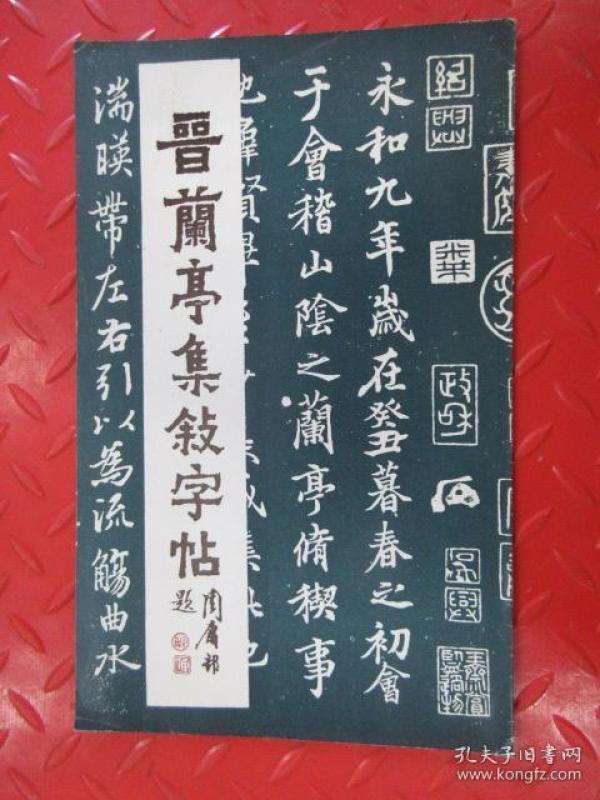 晋蘭亭集敍字帖
周庸邨
題
永和九年歲在癸丑暮春之初會
于會稽山陰之蘭亭脩稧事
湍暎帶左右引以為流觴曲水
紹興
政和
孔夫子旧書网
www.kongfz.com